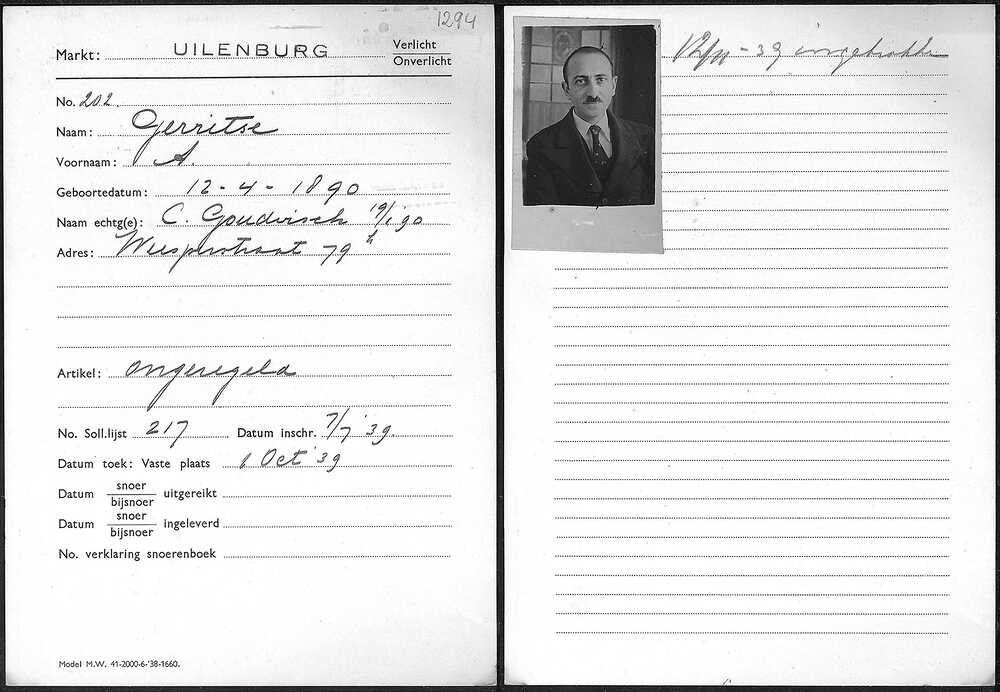 1294
Markt: UILENBURG Verlicht
Onverlicht
No. 202.
Naam: Gerritse
Voornaam: A.
Geboortedatum: 12-4-1890
Naam echtg(e): C. Goudvisch 19/1 90
Adres: Weesperstraat 79 h
Artikel: ongeregeld
No. Soll.lijst 217 Datum inschr. 7/7 '39.
Datum toek: Vaste plaats 1 Oct '39
Datum snoer
bijsnoer uitgereikt
Datum snoer
bijsnoer ingeleverd
No. verklaring snoerenboek
Model M.W. 41-2000-6-'38-1660.
- 39 ingetrokken